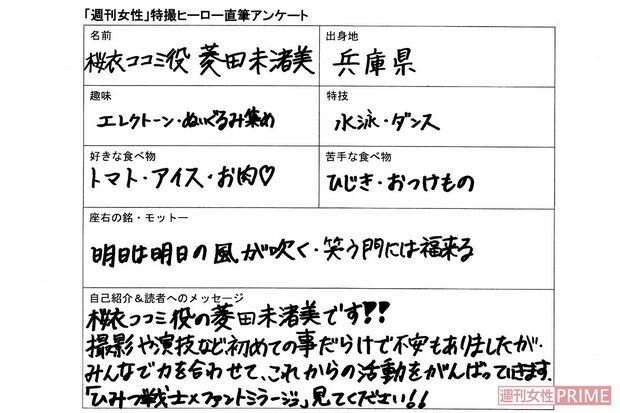 「週刊女性」特撮ヒーロー直筆アンケート
名前
桜衣ココミ役 菱田未渚美
出身地
兵庫県
趣味
エレクトーン・ぬいぐるみ集め
特技
水泳・ダンス
好きな食べ物
トマト・アイス・お肉♡
苦手な食べ物
ひじき・おつけもの
座右の銘・モットー
明日は明日の風が吹く・笑う門には福来る
自己紹介&読者へのメッセージ
桜衣ココミ役の菱田未渚美です!!
撮影や演技など初めての事だらけで不安もありましたが、
みんなで力を合わせて、これからの活動をがんばっていきます。
「ひみつ×戦士ファントミラージュ」見てください!!
週刊女性PRIME